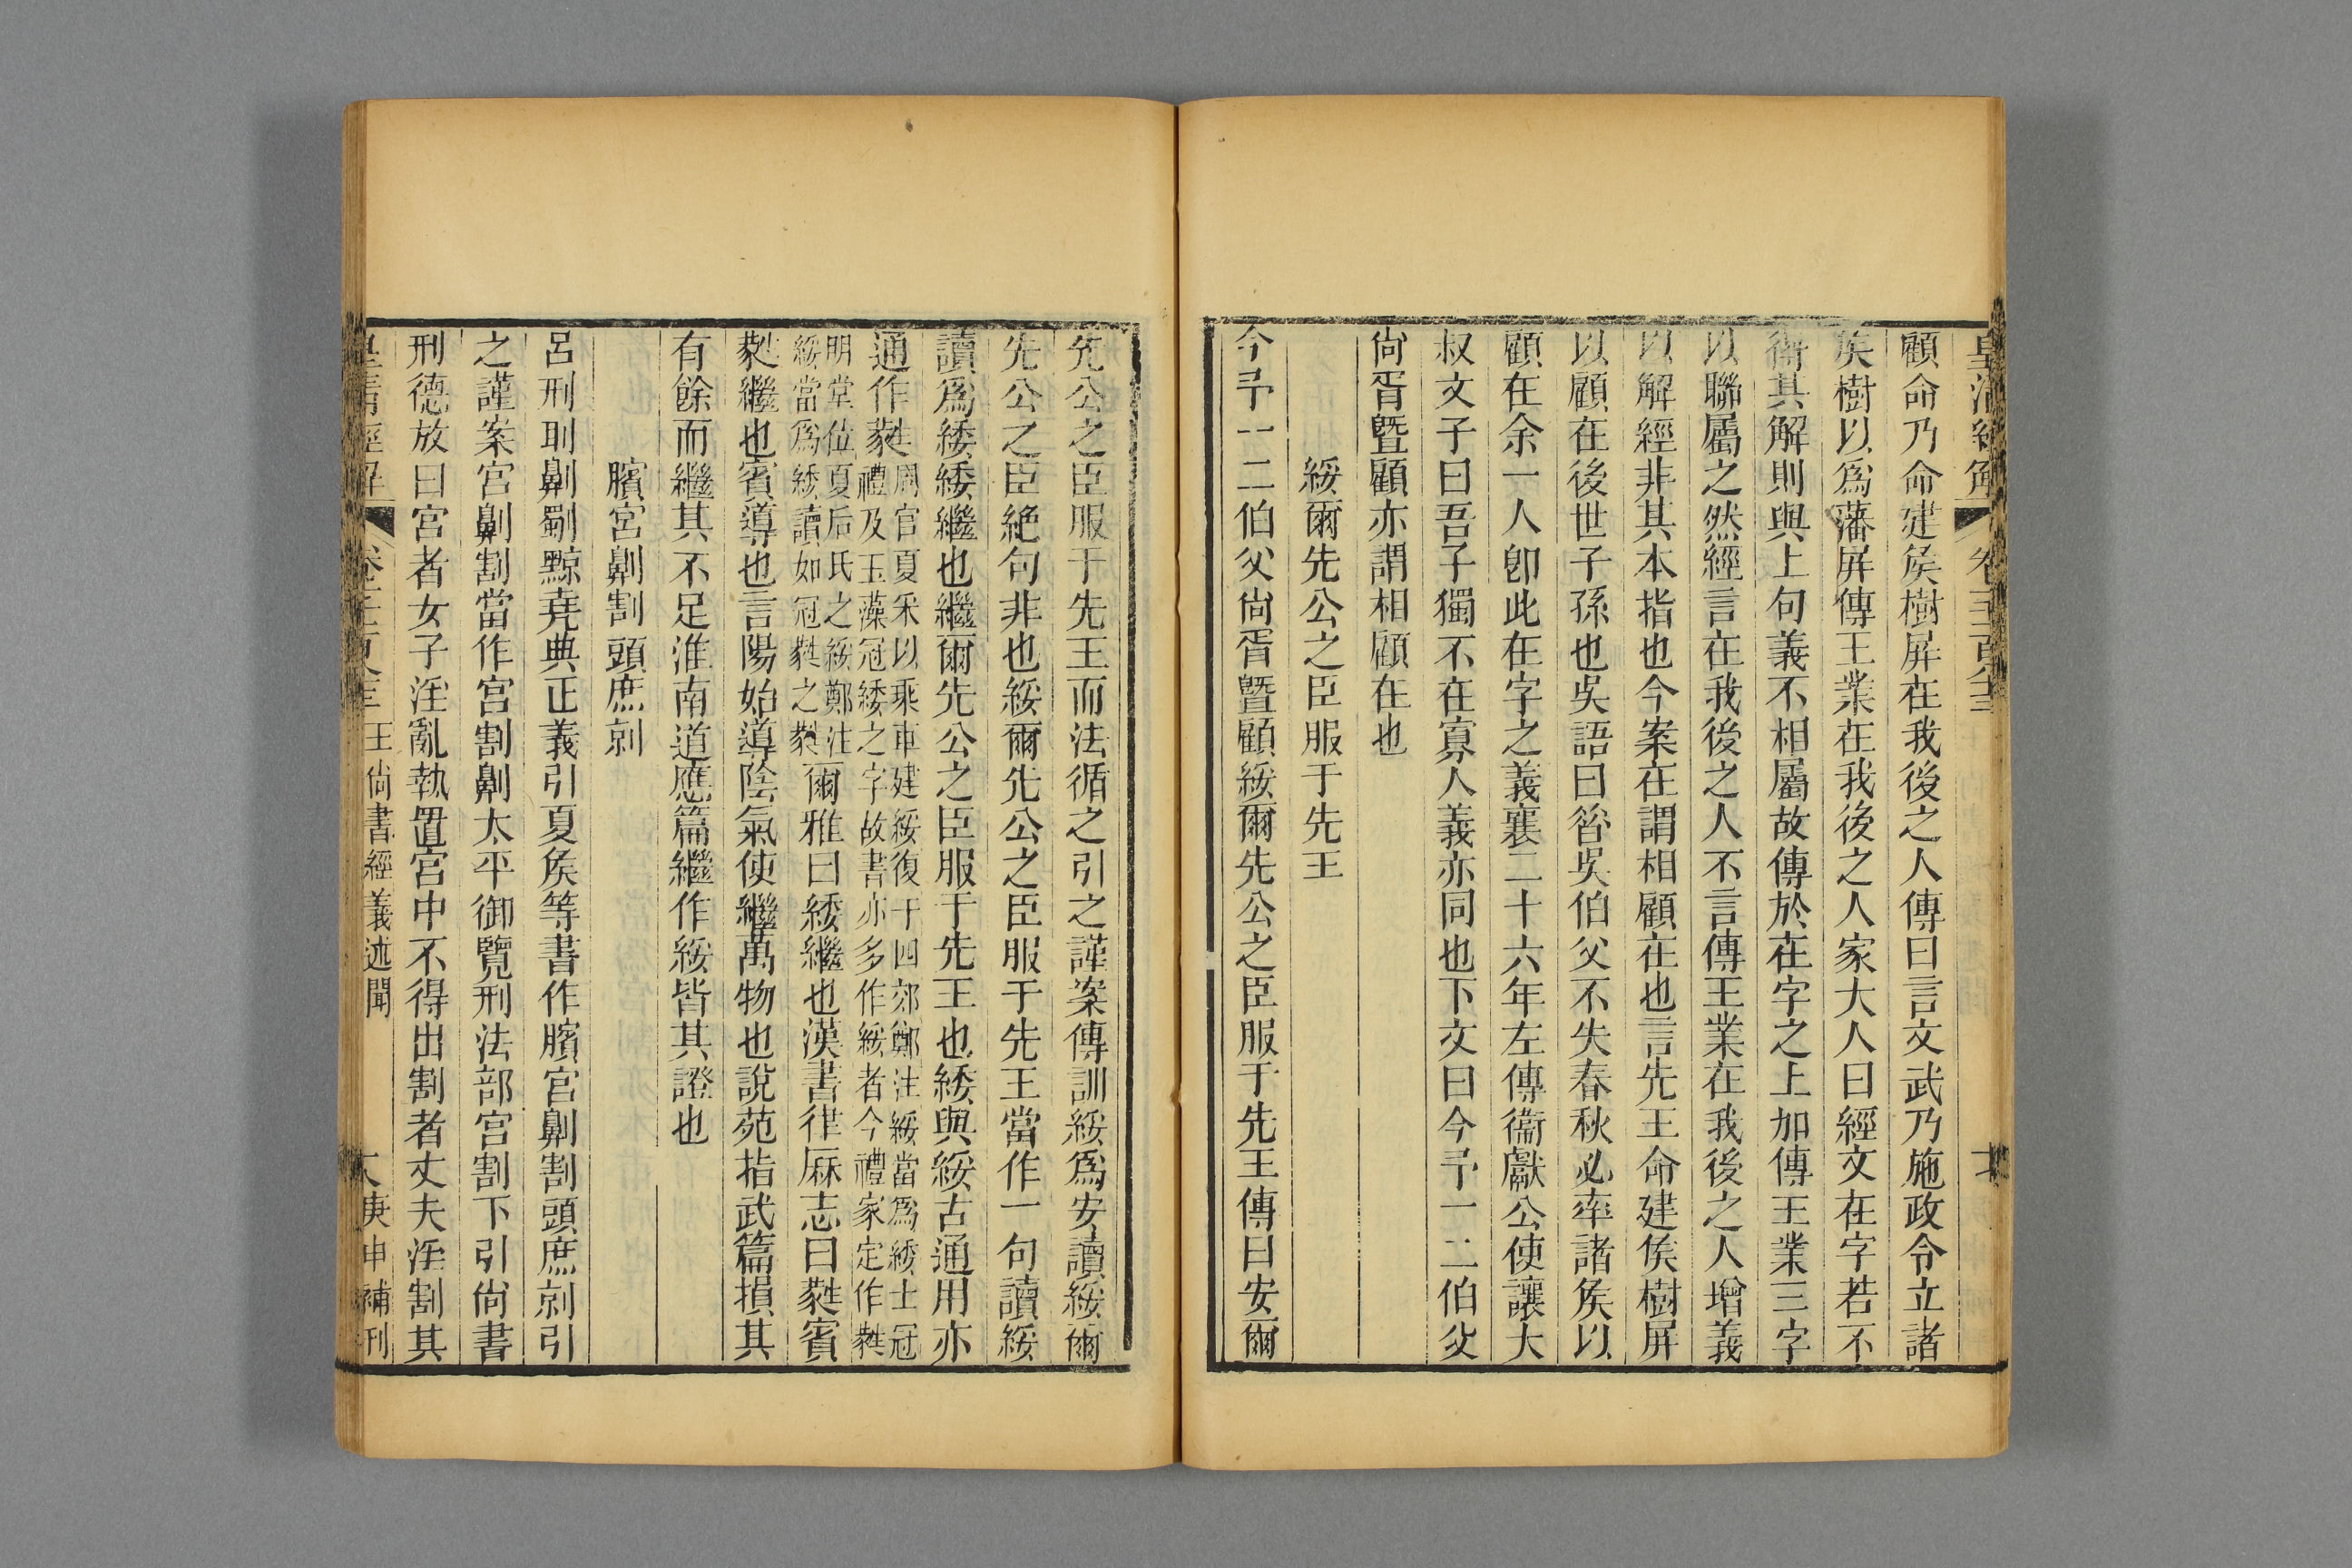 皇清經解 卷千一百八十三
顧命乃命建矦樹屏在我後之人傳曰言文武乃施政令立諸
矦樹以爲藩屏傳王業在我後之人家大人曰經文在字若不
衛其解則與上句義不相屬故傳於在字之上加傳王業三字
以聯屬之然經言在我後之人不言傳王業在我後之人增義
以解經非其本指也今案在謂相顧在也言先王命建矦樹屏
以顧在後世子孫也吳語曰昝吳伯父不失春秋必率諸矦以
顧在余一人卽此在字之義襄二十六年左傳衞獻公使讓大
叔文子曰吾子獨不在寡人義亦同也下文曰今予一二伯父
尙胥暨顧亦謂相顧在也
綏爾先公之臣服于先王
今予一二伯父尙胥曁顧綏爾先公之臣服于先王傳曰安爾
先公之臣服于先王而法循之引之謹案傳訓綏爲安讀綏爾
先公之臣絶句非也綏爾先公之臣服于先王當作一句讀綏
讀爲緌緌繼也繼爾先公之臣服于先王也緌與綏古通用亦
通作蕤周官夏采以乘車建綏復于四郊鄭注綏當爲緌士冠
禮及玉藻冠緌之字故書亦多作綏者今禮家定作蕤
明堂位夏后氏之綏鄭注
綏當爲緌讀如冠蕤之蕤爾雅曰緌繼也漢書律厤志曰蕤賓
蕤繼也賓導也言陽始導陰氣使繼萬物也說苑指武篇損其
有餘而繼其不足淮南道應篇繼作綏皆其證也
臏宮劓割頭庶剠
呂刑刵劓劅黥堯典正義引夏矦等書作臏宮劓割頭庶剠引
之謹案宮劓割當作宮割劓太平御覽刑法部宮割下引尙書
刑德放曰宮者女子淫亂執置宮中不得出割者丈夫淫割其
皇清經解 王尙書經義述聞 庚申補刊